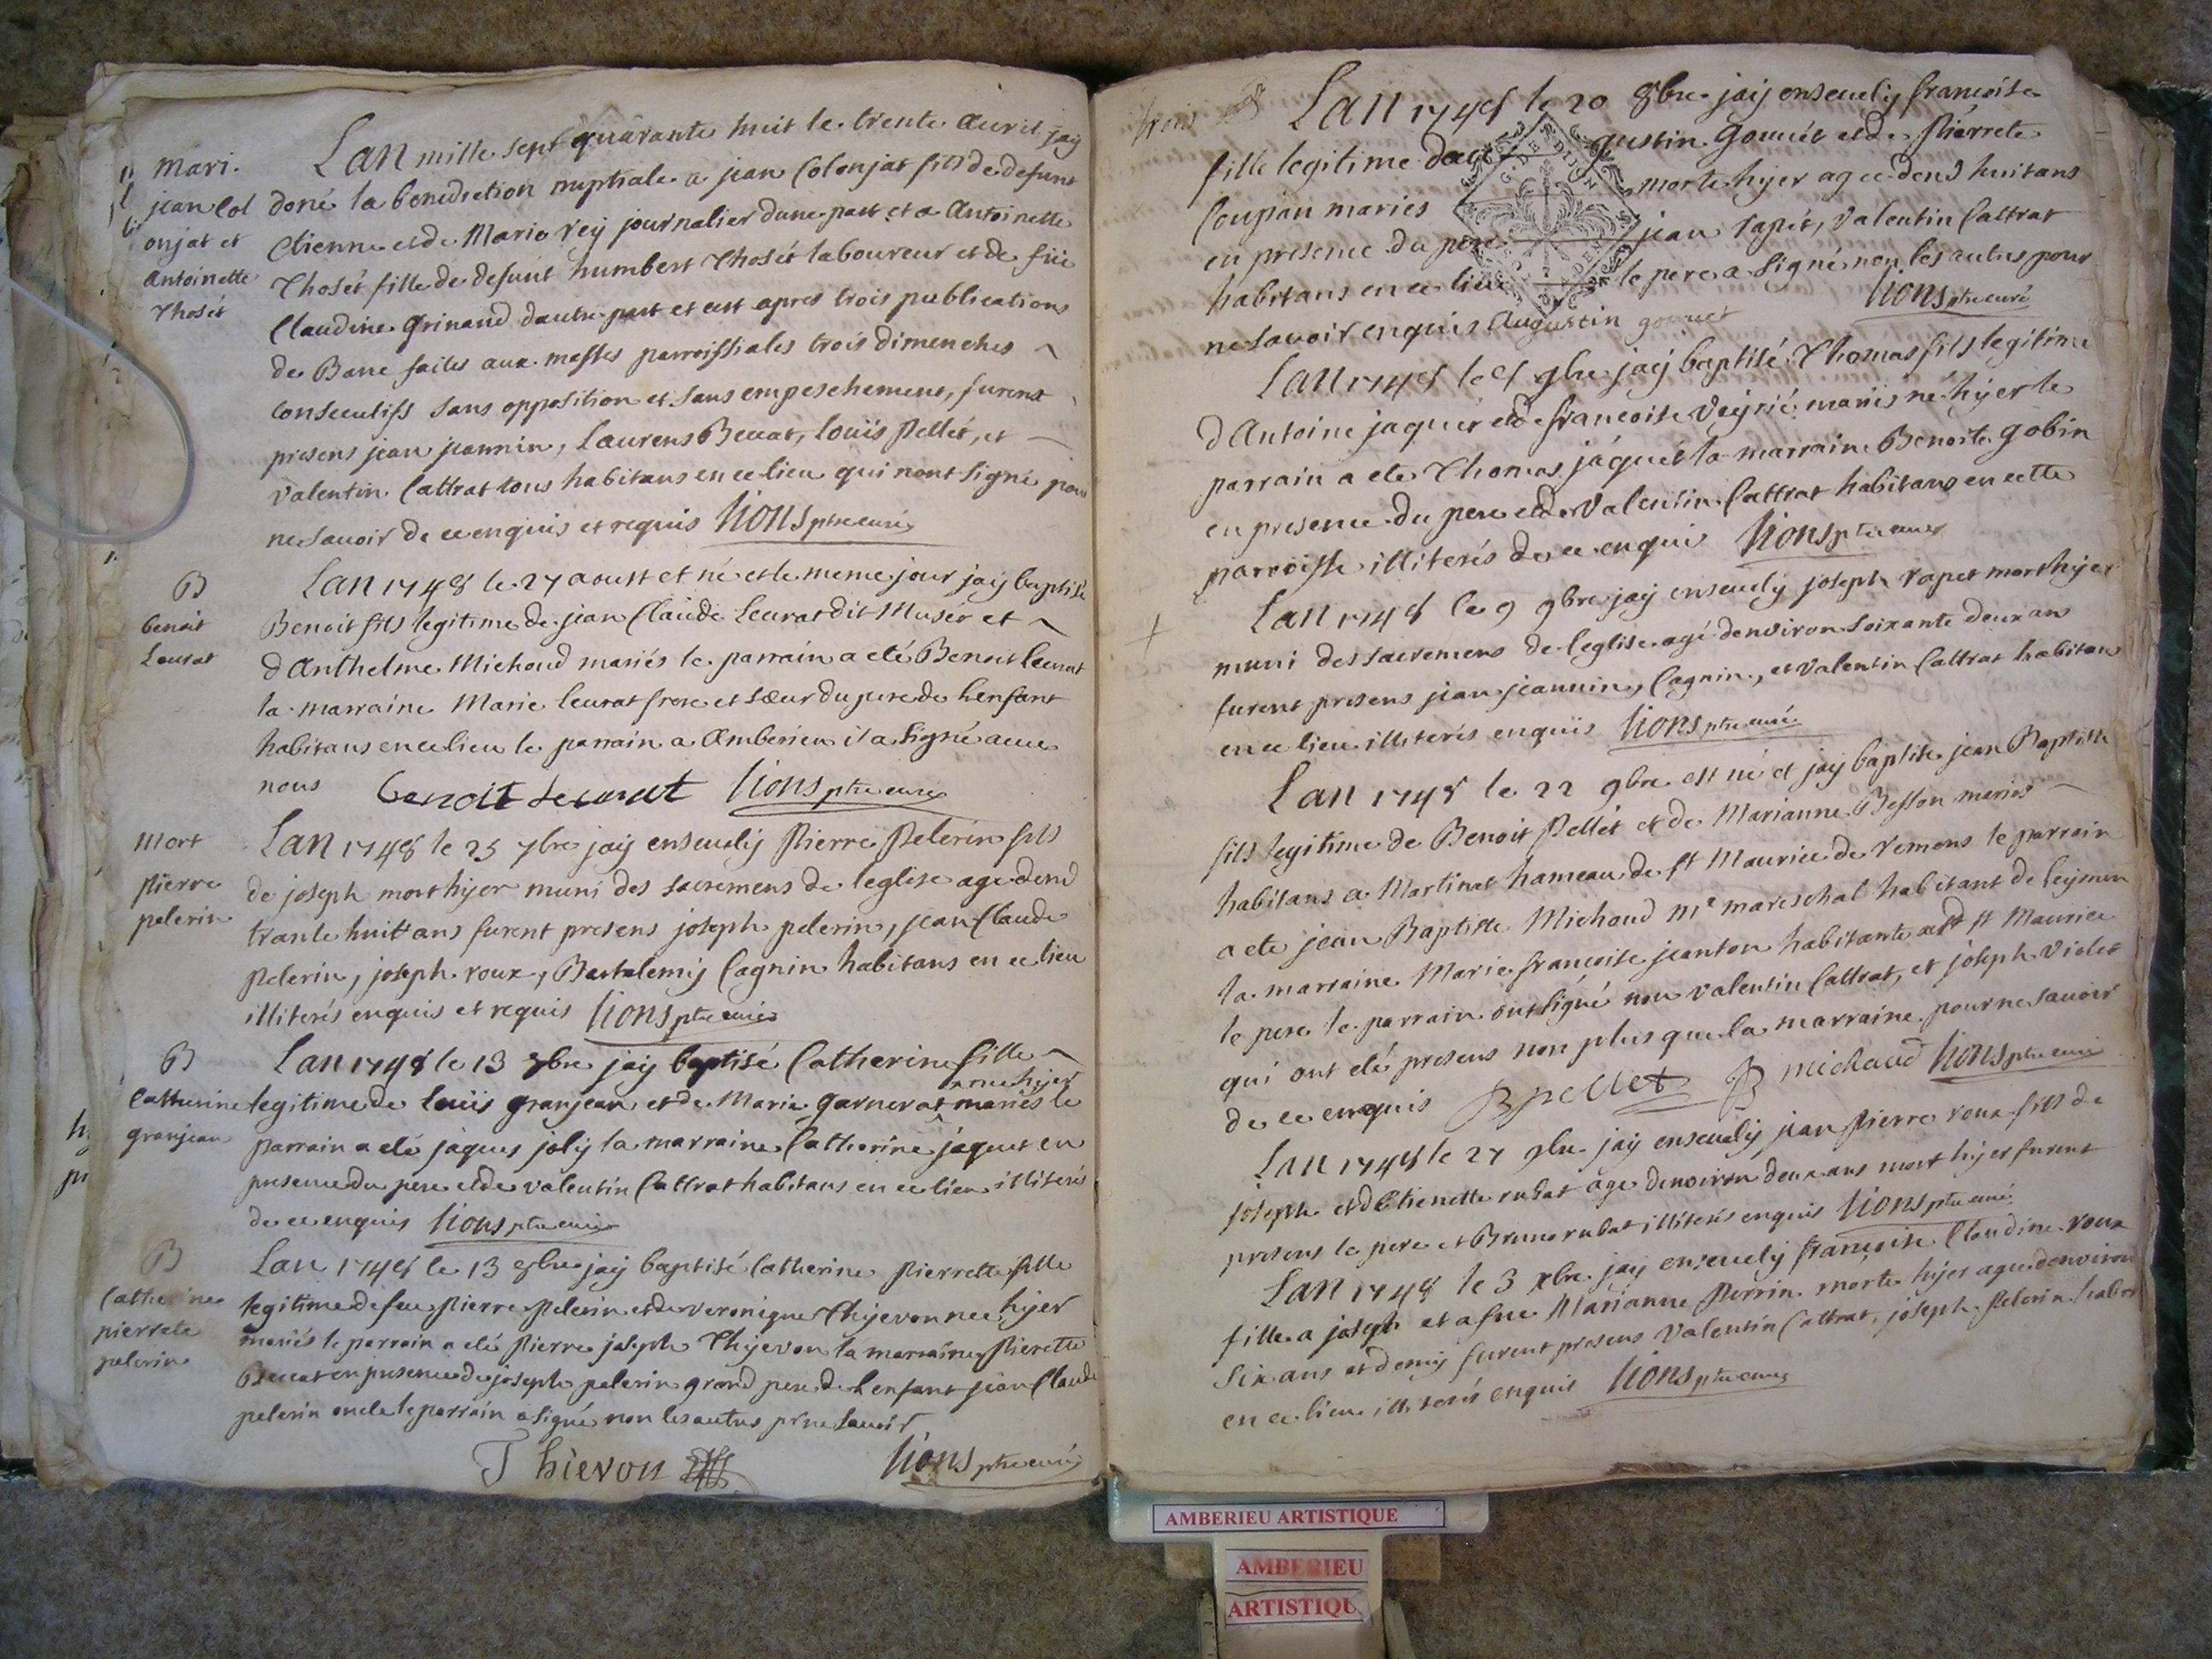 mari.
jean Col
onjat et
Antoinette
Thosét
Lan mille sept quarante huit le trente Avril jay
doné la benediction nuptiale a jean Colonjat fils de defunt
Etienne et de Marie rey journalier dune part et a Antoinette
Thosét fille de defunt humbert Thosét laboureur et de füe
Claudine Grinand dautre part et cest apres trois publications
de Banc faites aux messes parroissiales trois dimenches
consecutifs sans opposition et sans empeschement, furent
presens jean jeannin, Laurens Beccat, Louïs Pellét, et
valentin Cattrat tous habitans en ce lieu qui nont signé pour
ne savoir de ce enquis et requis Lions ptre curé
B
benoit
Leurat
Lan 1748 le 27 aoust et né et le meme jour jay baptisé
Benoit fils legitime de jean Claude Leurat dit Musér et
dAnthelme Michoud mariés le parrain a eté Benoit Leurat
la marraine Marie leurat frere et sœur du pere de lenfant
habitans en ce lieu le parrain a Amberieu il a signé avec
nous Benoit Leurat Lions ptre curé
Mort
pierre
pelerin
Lan 1748 le 25 7bre jay ensevely Pierre Pelerin fils
de joseph mort hyer muni des sacremens de leglise age denv
trante huitt ans furent presens joseph pelerin, jean Claude
Pelerin, joseph roux, Bartelemy Cagnin habitans en ce lieu
illiterés enquis et requis Lions ptre curé
B
Catherine
granjean
Lan 1748 le 13 8bre jay baptisé Catherine fille
née hyer
legitime de Louïs granjean et de Marie garnerat mariés le
parrain a eté jaques joly la marraine Catherine jaquet en
presence du pere et de valentin Cattrat habitans en ce lieu illiterés
de ce enquis Lions ptre curé
B
Catherine
pierrete
pelerin
Lan 1748 le 13 8bre jay baptisé Catherine Pierrette fille
legitime de feu Pierre Pelerin et de veronique Thyevon nee hyer
mariés le parrain a eté Pierre joseph Thyevon la marraine Pierette
Beccat en presence de joseph pelerin grand pere de lenfant jean Claude
pelerin oncle le parrain a signé non les autres pr ne savoir
Thievon Lions ptre curé
Lan 1748 le 20 8bre jay ensevely francoise
fille legitime dau gustin Gouuét et de Pierrete
Coupan mariés morte hyer agee denv huit ans
en presence du pere jean rapét, valentin Cattrat
habitans en ce lieu le pere a signé non les autres pour
ne savoir enquis Augustin gouuét Lions ptre curé
G. DE DIJON
Lan 1748 le 4 9bre jay baptisé Thomas fils legitime
dAntoine jaquét et de francoise Veyrié mariés né hyer le
parrain a ete Thomas jáquét la marraine Benoite gobin
en presence du pere et de valentin Cattrat habitans en cette
parroisse illiterés de ce enquis Lions ptre curé
Lan 1748 le 9 9bre jay ensevely joseph rapet mort hyer
muni des sacremens de leglise agé denviron soixante deux an
furent presens jean jeannin, Cagnin, et valentin Cattrat habitans
en ce lieu illiterés enquis Lions ptre curé
Lan 1748 le 22 9bre est né et jay baptisé jean Baptiste
fils legitime de Benoit Pellét et de Marianne Besson mariés
habitans a Martinat hameau de st Maurice de remens le parrain
a ete jean Baptiste Michoud me mareschal habitant de leyment
la marraine Marie francoise jeanton habitante audt st Maurice
le pere le parrain ont signé non valentin Cattrat, et joseph Violet
qui ont eté presens non plus que la marraine pour ne savoir
de ce enquis B pellet JB michaud Lions ptre curé
Lan 1748 le 27 9bre jay ensevely jean Pierre roux fils de
joseph et dEtienette rubat age denviron deux ans mort hyer furent
presens le pere et Bruno rubat illiterés enquis Lions ptre curé
Lan 1748 le 3 xbre jay ensevely francoise Claudine roux
fille a joseph et a fue Marianne Perrin morte hyer agee denviron
six ans et demy furent presens Valentin Cattrat, joseph Pelerin habit
en ce lieu illiterés enquis Lions ptre curé
AMBERIEU ARTISTIQUE
AMBERIEU
ARTISTIQU